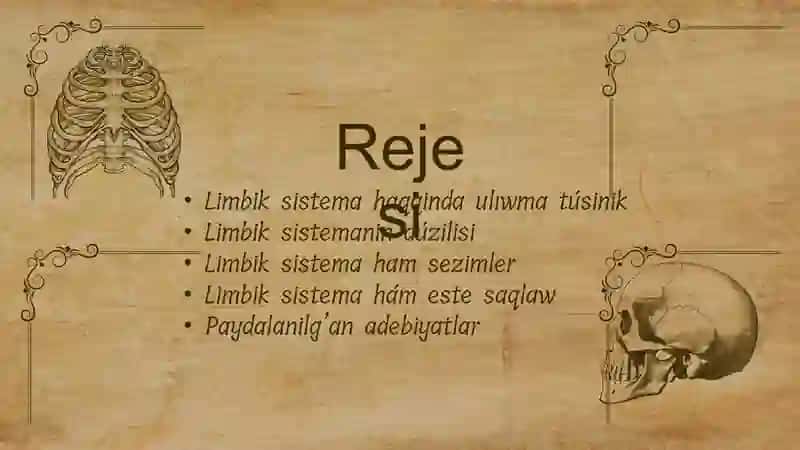 Reje
si
• Limbik sistema haqqinda ulıwma túsinik
• Limbik sistemanin dúzilisi
• Limbik sistema ham sezimler
• Limbik sistema hám este saqlaw
• Paydalanilg’an adebiyatlar